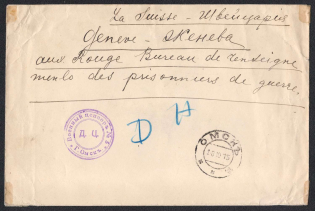 La Suisse - Швейцарія
Genève - Женева
aux Rouge Bureau de renseigne
ments des prisonniers de guerre.
D H
Д. Ц.
Омскъ
ОМСКЪ